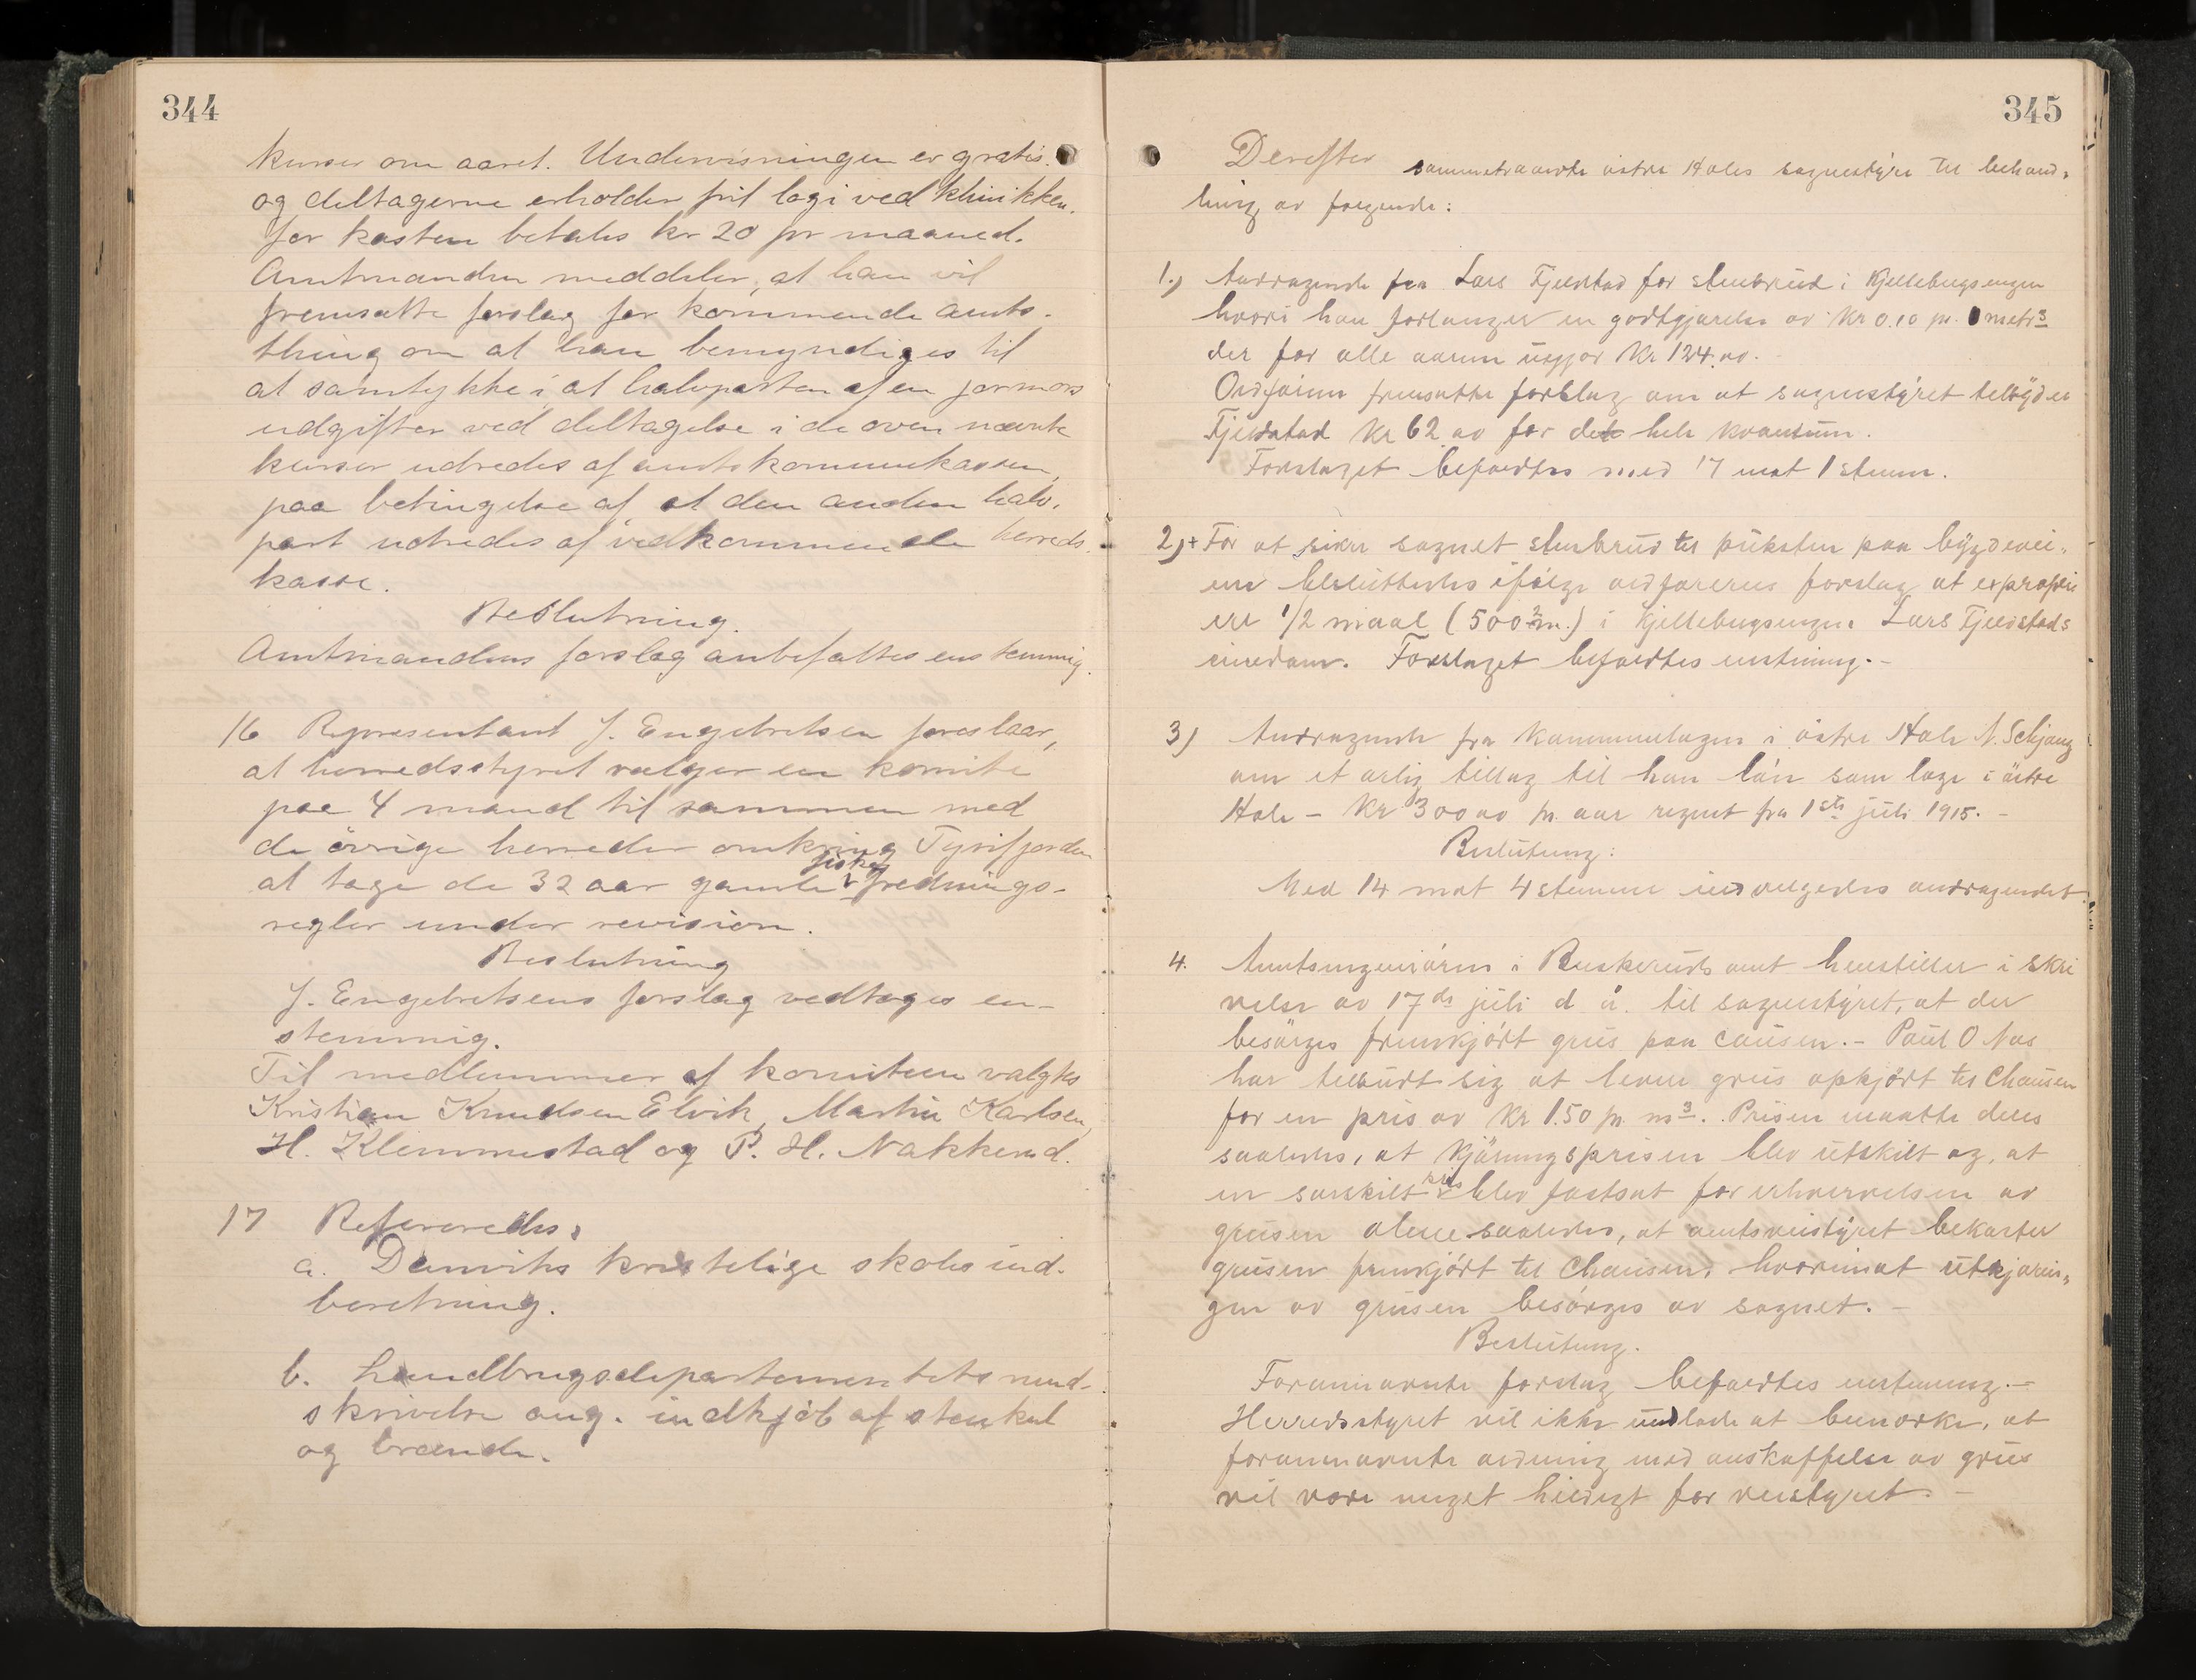 344
kurser om aaret. Undervisningen er gratis.
og deltagerne erholder frit logi ved klinikken.
for kosten betales kr 20 pr maaned.
Amtmanden meddeler, at han vil
fremsætte forslag for kommende amts-
thing om at han bemyndiges til
at samtykke i at halvparten af en jormors
udgifter ved deltagelse i de oven nævnte
kurser udredes af amtskommunekassen,
paa betingelse af at den anden halv-
part udredes af vedkommende herreds-
kasse.
Beslutning.
Amtmandens forslag anbefaltes enstemmig.
16 Representant J. Engebretsen foreslaar,
at herredsstyret vælger en komite
paa 4 mand til sammen med
de övrige herreder omkring Tyrifjorden
at tage de 32 aar gamle fiske frednings-
regler under revision.
Beslutning
J. Engebretsens forslag vedtoges en-
stemmig.
Til medlemmer af komiteen valgtes
Kristian Knudsen Elvik, Martin Karlsen,
H. Klemmestad og P. H. Nakkerud.
17 Refereredes:
a. Danviks kristelige skoles ind-
beretning.
b. Landbrugsdepartementets rund-
skrivelse ang. indkjöb af stenkul
og brænde.
345
Derefter sammentraadte östre Holes sognestÿre til behand-
ling av følgende:
1.) Andragende fra Lars Fjeldstad for stenbrud i Kjellebergsengen
hvori han forlanger en godtgjørelse av Kr 0.10 pr. metr3
der for alle aarene utgjør Kr 124.00.-
Ordføren fremsatte forslag om at sognestÿret tilbÿder
Fjeldstad Kr 62.00 for det hele kvantum.
Forslaget bifaldtes med 17 mot 1 stemm.
2)+ For at sikre sognet stenbrud til pukster paa bÿgdevei-
ene besluttedes ifølge ordførerens forslag at expropri
ere 1/2 maal (500 m2.) i Kjellebergsengen Lars Fjeldstads
eiendom. Forslaget bifaldtes enstemmig.-
3) Andragende fra kommunelægen i östre Hole N. Schjong
om et aarlig tillæg til han lön som læge i östre
Hole - Kr 300.00 pr. aar regnet fra 1ste juli 1915.-
Beslutning:
Med 14 mot 4 stemmer imøtegedes andragendet.
4. Amtsingeniøren i Buskeruds amt henstiller i skri
velse av 17de juli d å. til sognestÿret, at der
besörges fremkjört grus paa causen.- Paul O Næs
har tilbudt sig at levere grus opkjört til Chausen
for en pris av Kr 1.50 pr m3. Prisen maatte deles
saaledes, at kjöringsprisen blev utskilt og, at
en særskilt pris blev fastsat for erhvervelsen av
grusen alene saaledes, at amtsveistÿret bekoster
grusen fremkjört til Chausen, hvorimot utkjörin-
gen av grusen besörges av sognet.-
Beslutning.
Forannævnte forslag bifaldtes enstemmig.-
Herredsstyret vil ikke undlade at bemerke, at
forannævnte ordning med anskaffelse av grus
vil være meget heldigt for veistyret.-